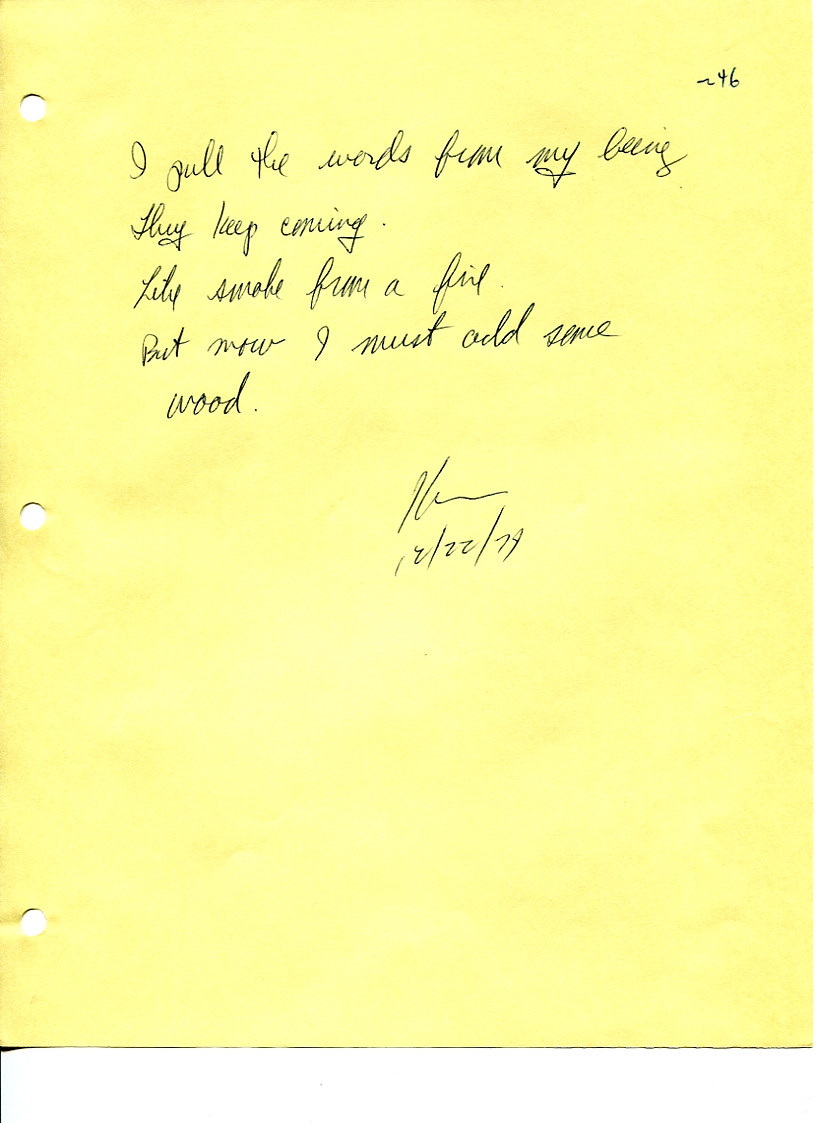 ~46
I pull the words from my being
They keep coming.
Like smoke from a fire.
But now I must add some
wood.
12/22/79